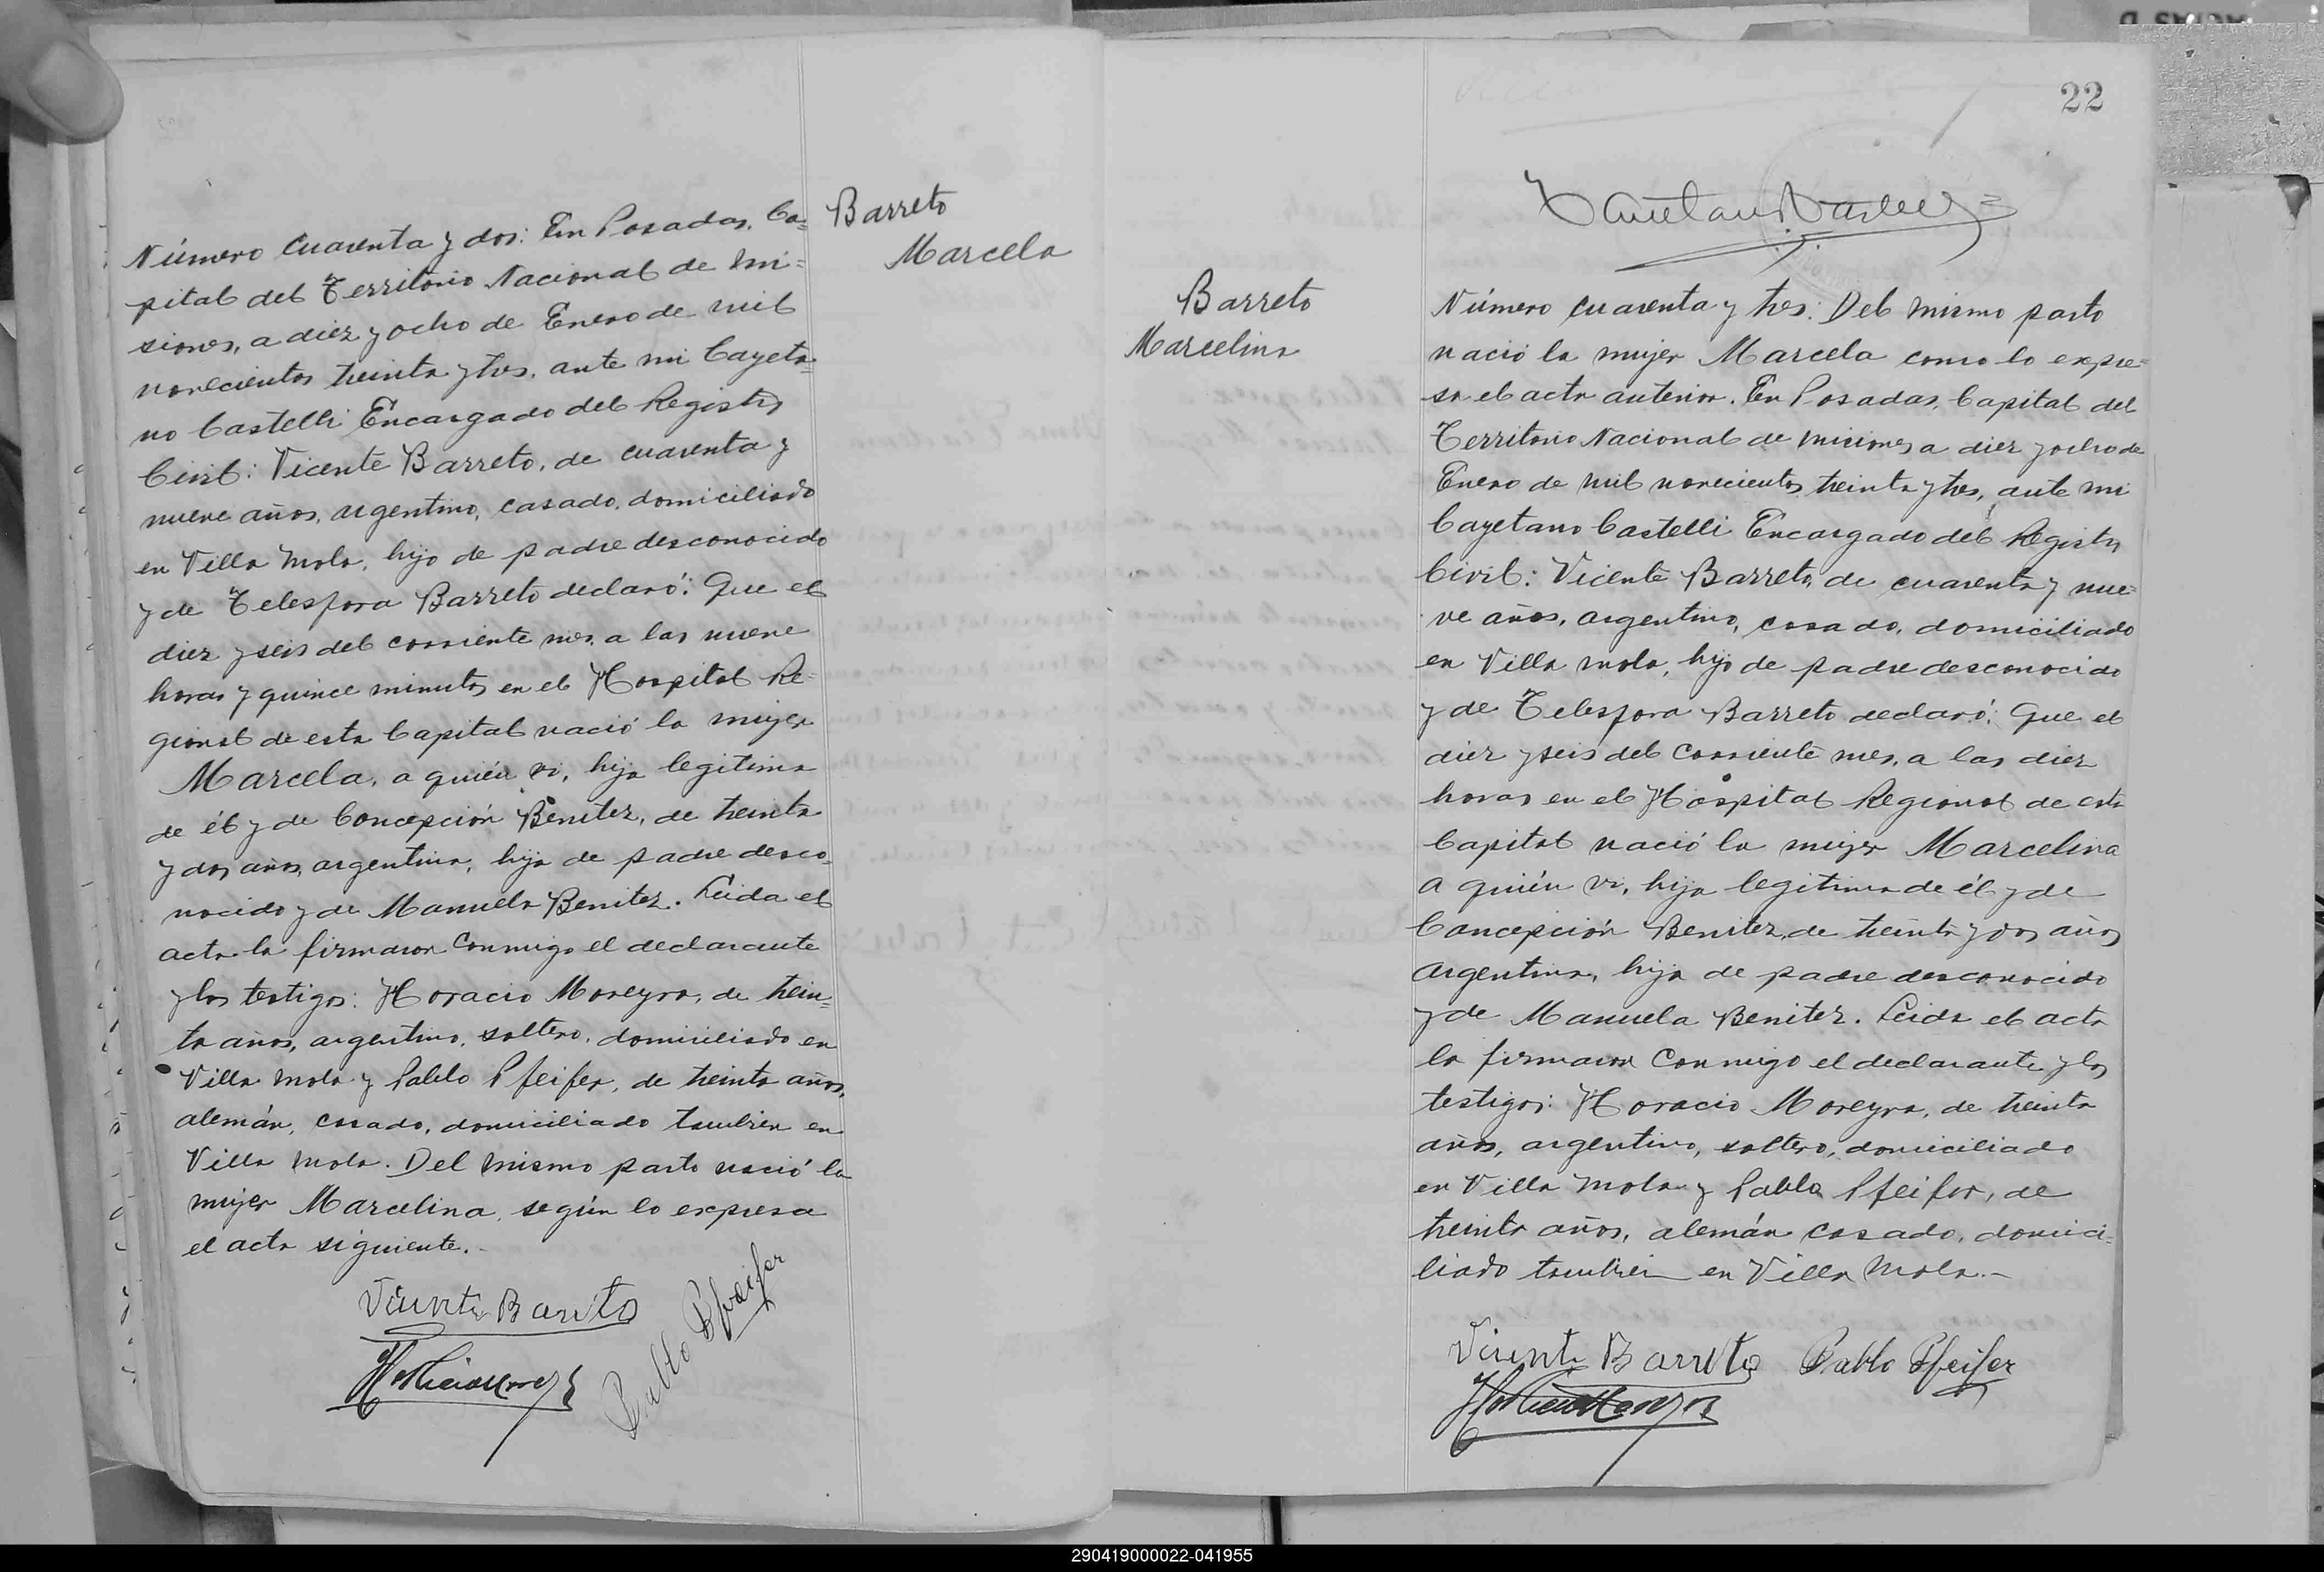 Número Cuarenta y dos: En Posadas, Ca=
pital del Territorio Nacional de Mi=
siones, a diez y ocho de Enero de mil
novecientos treinta y tres, ante mi Cayeta=
no Castelli Encargado del Registro
Civil: Vicente Barreto, de cuarenta y
nueve años, argentino, casado, domiciliado
en Villa Mola, hijo de padre desconocido
y de Telesfora Barreto declaró: Que el
diez y seis del corriente mes, a las nueve
horas y quince minutos en el Hospital Re=
gional de esta Capital nació la mujer
Marcela, a quién vi, hija legitima
de él y de Concepción Benitez, de treinta
y dos años, argentina, hija de padre desco=
nocido y de Manuela Benitez. Leida el
acta la firmaron conmigo el declarante
y los testigos: Horacio Moreyra, de trein=
ta años, argentino, soltero, domiciliado en
Villa Mola y Pablo Pfeifer, de treinta años,
alemán, casado, domiciliado tambien en
Villa Mola. Del mismo parto nació la
mujer Marcelina, según lo expresa
el acta siguiente.-
Vicente Barreto
Pablo Pfeifer
Barreto
Marcela
22
Barreto
Marcelina
Número cuarenta y tres: Del mismo parto
nació la mujer Marcela como lo expre=
sa el acta anterior. En Posadas, Capital del
Territorio Nacional de Misiones, a diez y ocho de
Enero de mil novecientos treinta y tres, ante mi
Cayetano Castelli Encargado del Registro
Civil: Vicente Barreto, de cuarenta y nue=
ve años, argentino, casado, domiciliado
en Villa Mola, hijo de padre desconocido
y de Telesfora Barreto declaró: Que el
diez y seis del corriente mes, a las diez
horas en el Hospital Regional de esta
Capital nació la mujer Marcelina
a quién vi, hija legitima de él y de
Concepción Benitez, de treinta y dos años
argentina, hija de padre desconocido
y de Manuela Benitez. Leida el acta
la firmaron conmigo el declarante y los
testigos: Horacio Moreyra, de treinta
años, argentino, soltero, domiciliado
en Villa Mola y Pablo Pfeifer, de
treinta años, alemán casado, domici=
liado tambien en Villa Mola.-
Vicente Barreto Pablo Pfeifer
290419000022-041955